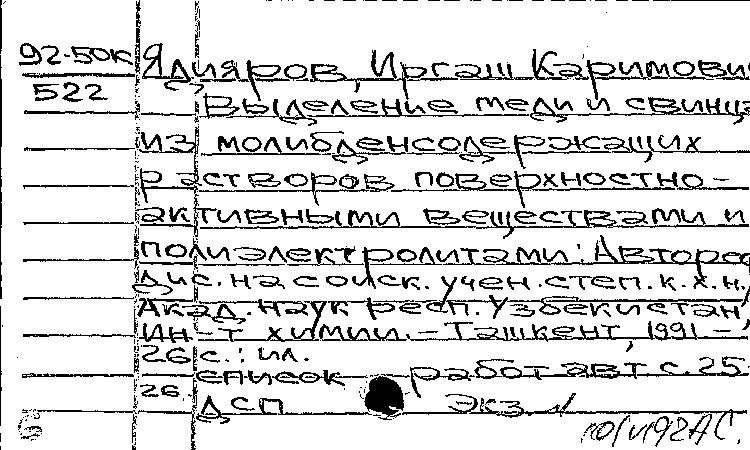 92-50к Ядияров, Иргаш Каримович
522 Выделение меди и свинца
из молибденсодержащих
растворов поверхностно-
активными веществами и
полиэлектролитами: Автореф
дис. на соиск. учен. степ. к. х. н./
Акад. наук респ. Узбекистан,
Ин-т химии. - Ташкент, 1991 -
26 с.: ил.
список работ авт с. 25-
26.
ДСП экз.